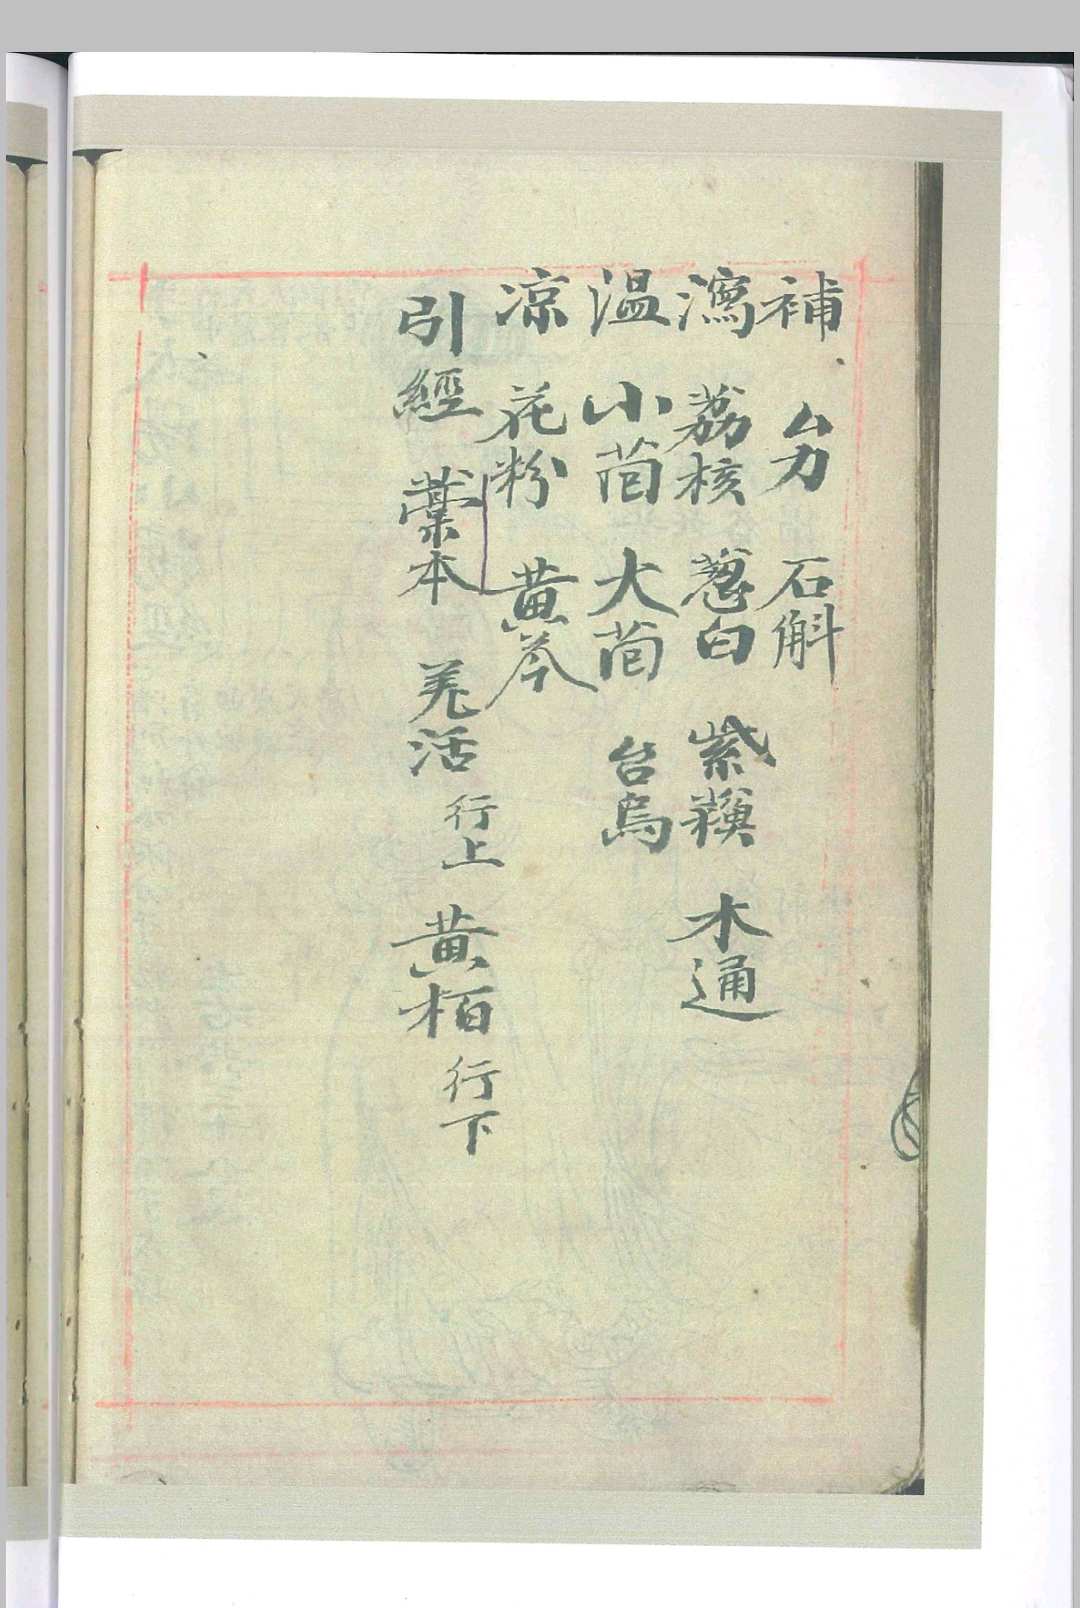 補 石斛
瀉 荔核 葱白 紫 木通
温 小茴 大茴 台烏
凉 花粉 黄芩
引經 藁本 羌活 行上 黄栢 行下